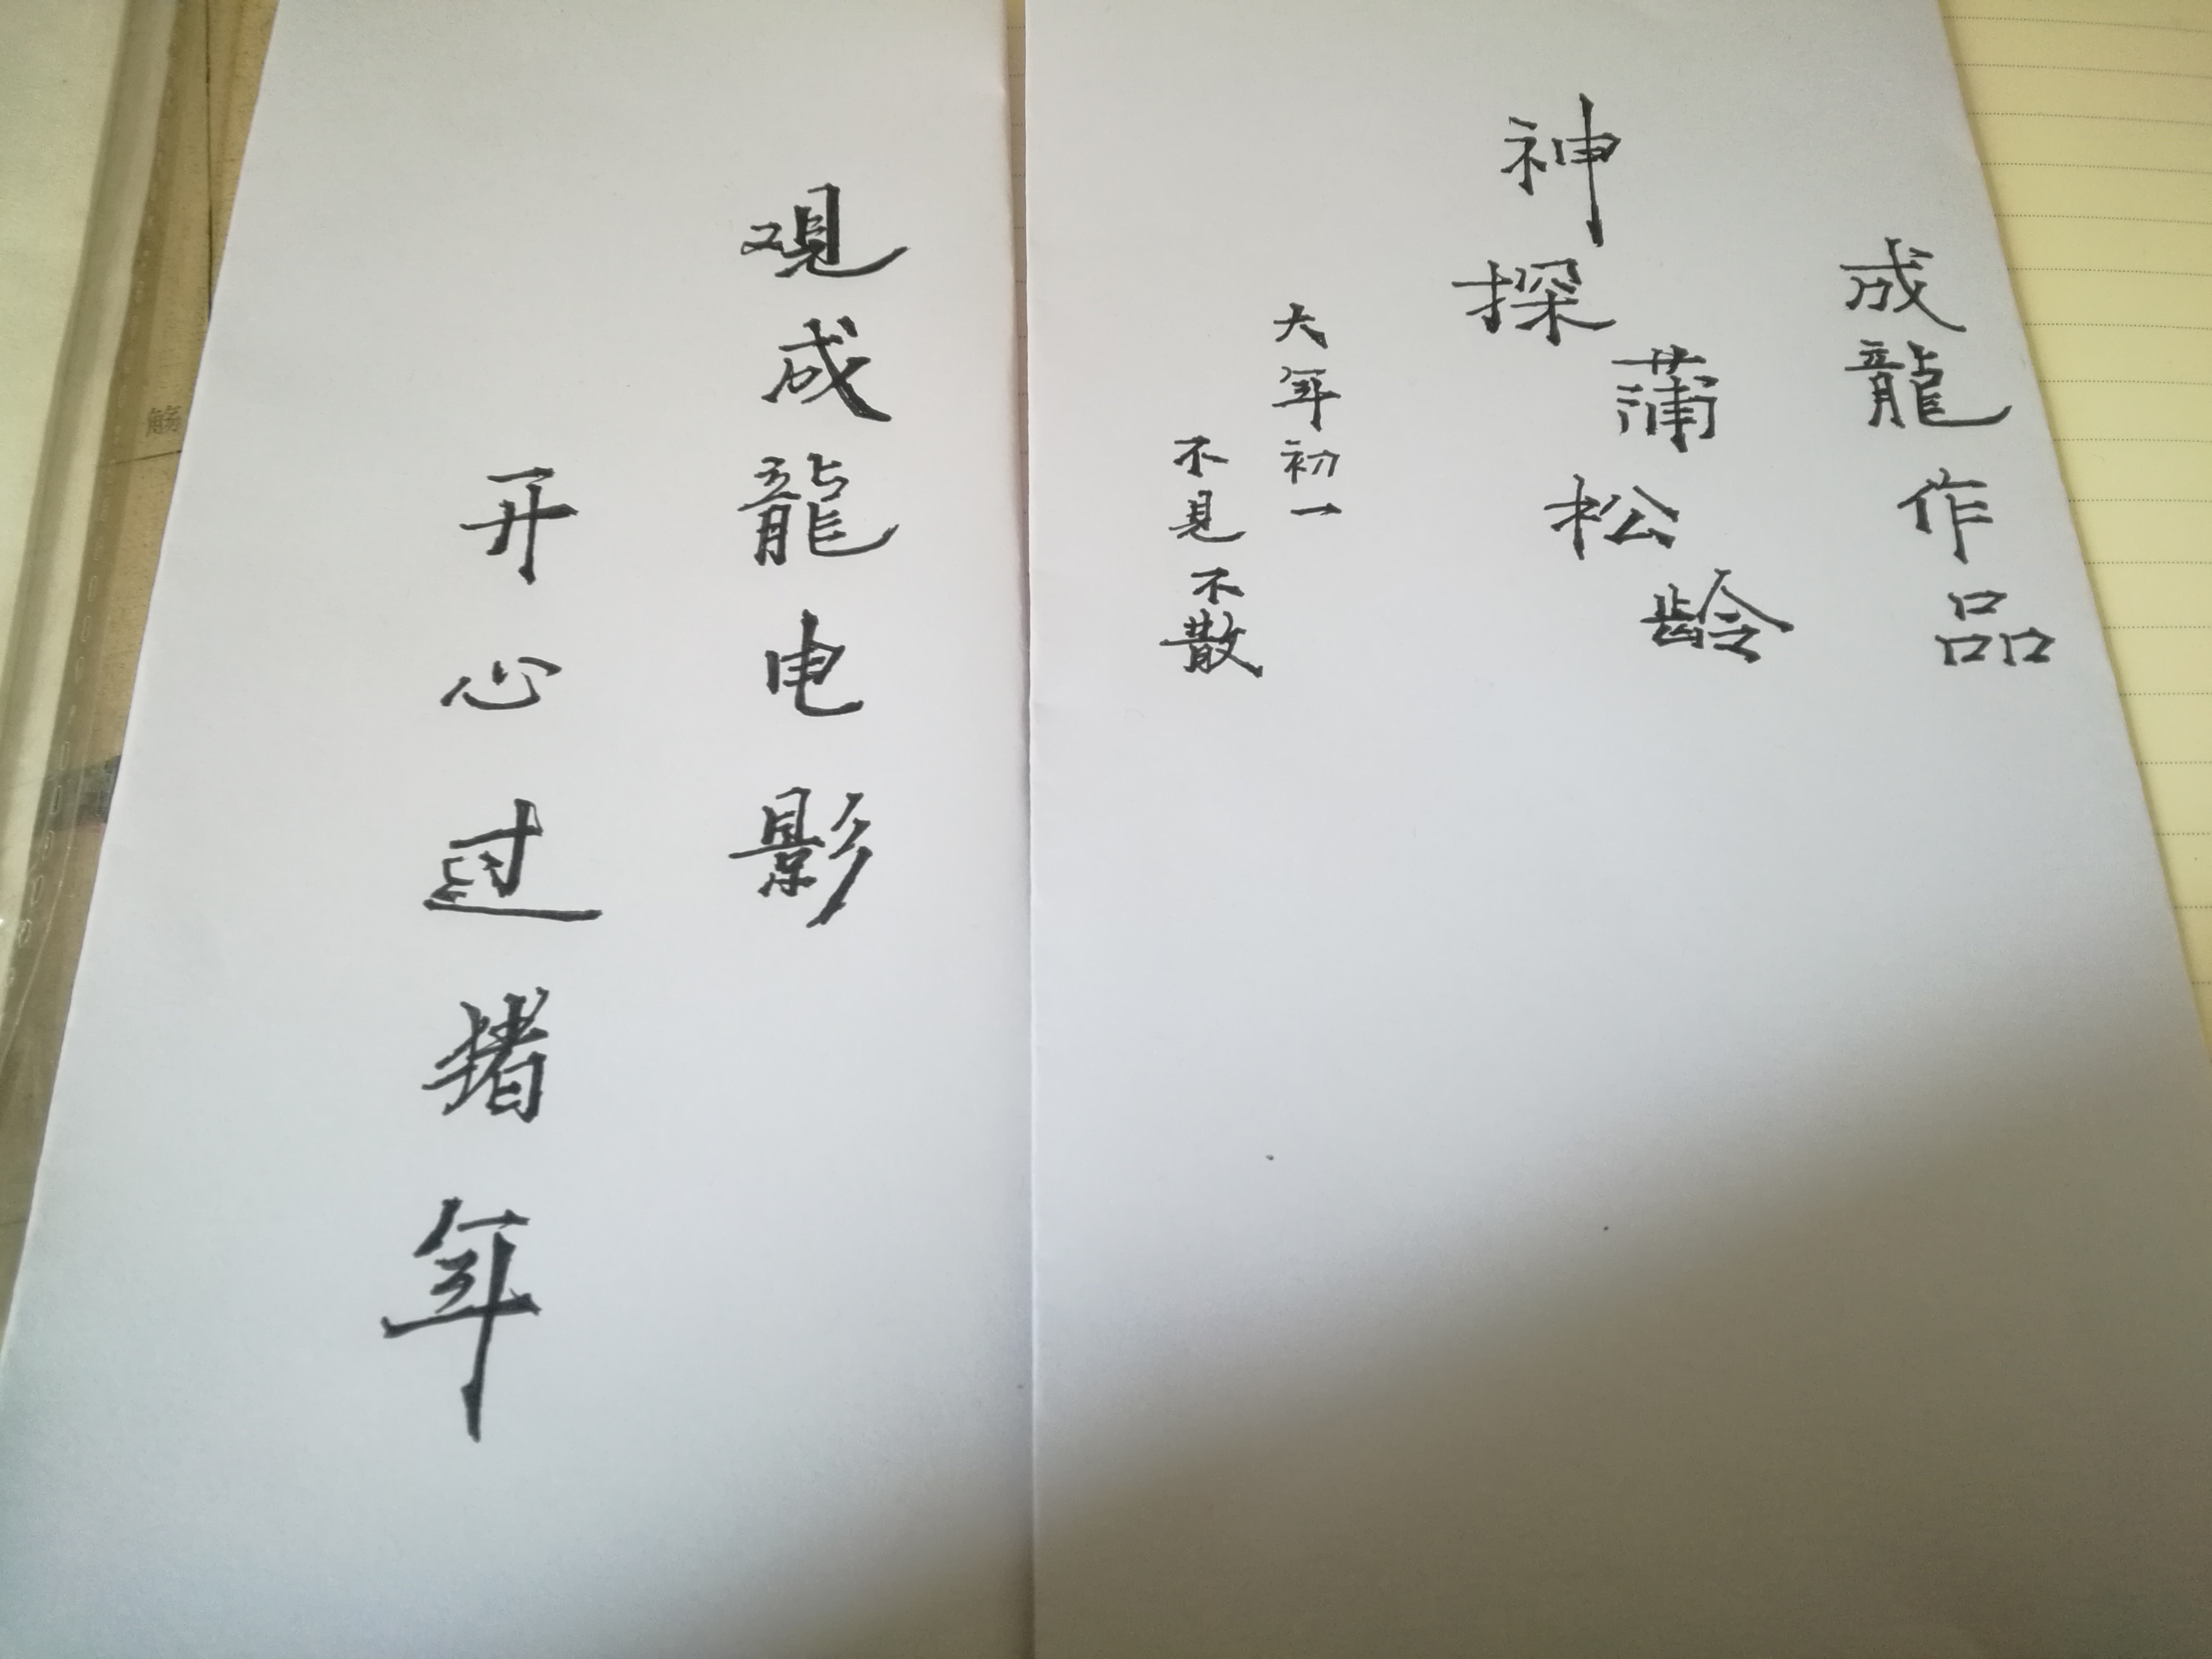 成龍作品
神探蒲松龄
大年初一
不見不散
观成龍电影
开心过猪年